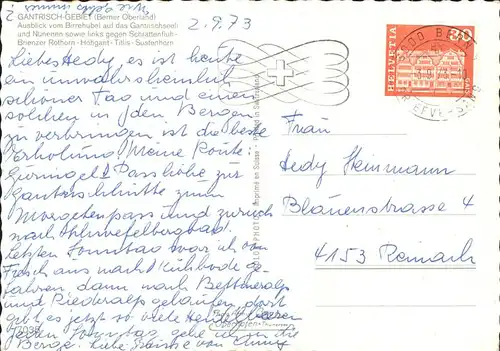 2.9.73
GANTRISCH-GEBIET (Berner Oberland)
Ausblick vom Birrehubel auf das Gantrischseeli
und Nünenen sowie links gegen Schrattenfluh -
Brienzer Rothorn - Hohgant - Titlis - Sustenhorn
Liebe Hedy, es ist heute
ein unwahrscheinlich
schöner Tag und einen
solchen in den Bergen
zu verbringen ist die beste
Erholung. Meine Route:
Gurnigel Passhöhe zur
Gantrischhütte zum
Morgetenpass und zurück
nach Schwefelbergbad.
Letzten Sonntag war ich von
Fiesch aus nach Kühboden ge-
fahren, dann nach Bettmeralp
und Riederalp gelaufen, dort
gibt es jetzt so viele Heidelbeeren
Sonntag gehe ich in die
Berge. Liebe Grüsse von
Printed in Switzerland
Imprimé en Suisse
HELVETIA
3000 BERN
Frau
Hedy Heinimann
Blauenstrasse 4
4153 Reinach